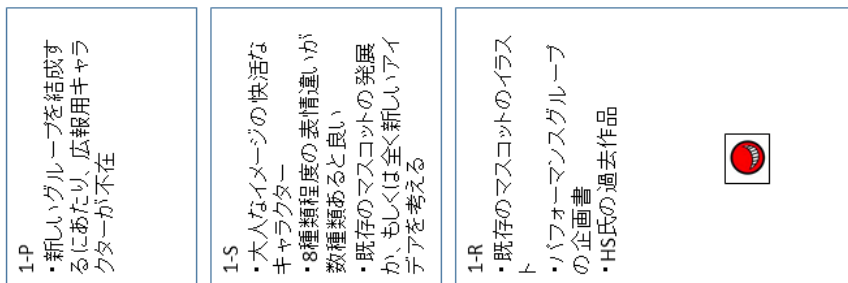 1-P
・新しいグループを結成す
るにあたり、広報用キャラ
クターが不在
1-S
・大人なイメージの快活な
キャラクター
・8種類程度の表情違いが
数種類あると良い
・既存のマスコットの発展
か、もしくは全く新しいアイ
デアを考える
1-R
・既存のマスコットのイラス
ト
・パフォーマンスグループ
の企画書
・HS氏の過去作品